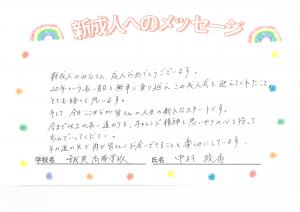 新成人へのメッセージ
新成人のみなさん、成人おめでとうございます。
20年という長い月日を無事に乗り越え、この成人式を迎えてくれたこと、
とても嬉しく思います。
そして、今日ここからが皆さんの人生の新たなスタートです。
今まで以上の長い道のりを、チャレンジ精神と思いやりの心を持って
歩んでいってください。
その道の先で皆さんにお会いできることを楽しみにしています。
学校名 高等学校 氏名 中村